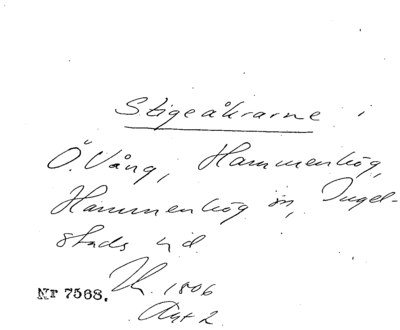 Stigeåkrarne i
Ö. Vång, Hammenhög,
Hammenhög sn, Ingel-
stads hd
1806
Nr 7568.
Akt 2